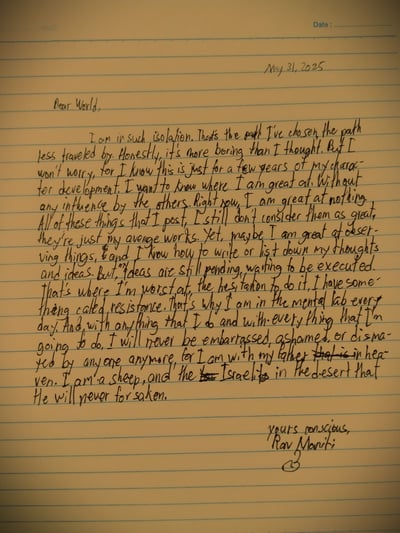 Date:
May 21, 2025
Dear World,
I am in such isolation. That's the path I've chosen, the path
less traveled by. Honestly, it's more boring than I thought. But I
won't worry, for I know this is just for a few years of my charac-
ter development. I want to know where I am great at. Without
any influence by the others. Right now, I am great at nothing.
All of these things that I post, I still don't consider them as great,
they're just my average works. Yet, maybe I am great at obser-
ving things, and I know how to write or list down my thoughts
and ideas. But, ideas are still pending, waiting to be executed.
That's where I'm worst at, the hesitation to do it, I have some-
thing called resistance. That's why I am in the mental lab every
day. And, with anything that I do and with everything that I'm
going to do, I will never be embarrassed, ashamed, or disma-
yed by anyone anymore, for I am with my father that is in hea-
ven. I am a sheep, and the Israelite in the desert that
He will never forsaken.
yours conscious,
Rav